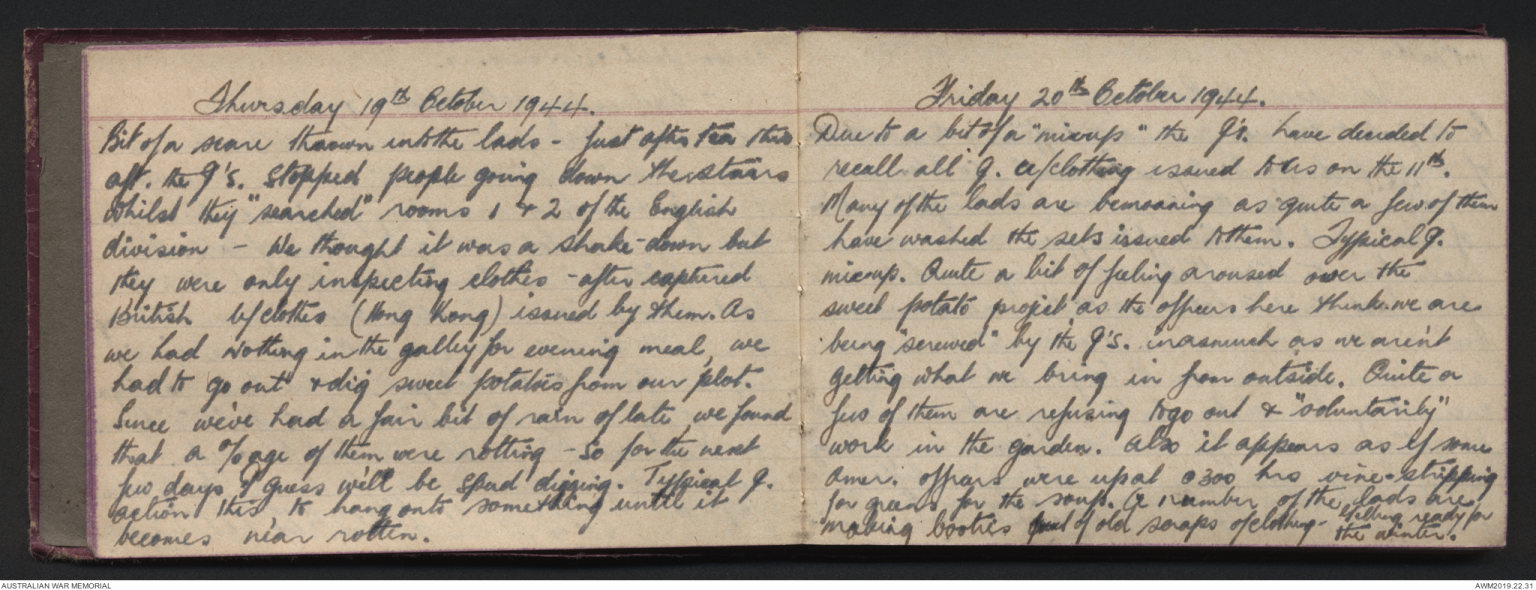 Thursday 19th October 1944.
Bit of a scare thrown into the lads - just after tea this
aft. the J's. stopped people going down the stairs
whilst they "searched" rooms 1 & 2 of the English
division - We thought it was a shake-down but
they were only inspecting clothes - after captured
British clothes (Hong Kong) issued by them. As
we had nothing in the galley for evening meal, we
had to go out & dig sweet potatoes from our plot.
Since we've had a fair bit of rain of late, we found
that a %age of them were rotting - So for the next
few days I guess we'll be spud digging. Typpical J.
action this to hang onto something until it
becomes near rotten.
Friday 20th October 1944.
Due to a bit of a "mixup" the J's. have decided to
recall all J. clothing issued to us on the 11th.
Many of the lads are bemoaning as quite a few of them
have washed the sets issued to them. Typpical J.
mixup. Quite a bit of feeling aroused over the
sweet potato project as the officers here think we are
being "screwed" by the J's. inasmuch as we aren't
getting what we bring in from outside. Quite a
few of them are refusing to go out & "voluntarily"
work in the garden. Also it appears as if some
Amer. officers were up at 0300 hrs vine-stripping
for greens for the soup. A number of the lads are
making booties out of old scraps of clothing - getting ready for
the winter.
AUSTRALIAN WAR MEMORIAL
AWM2019.22.31